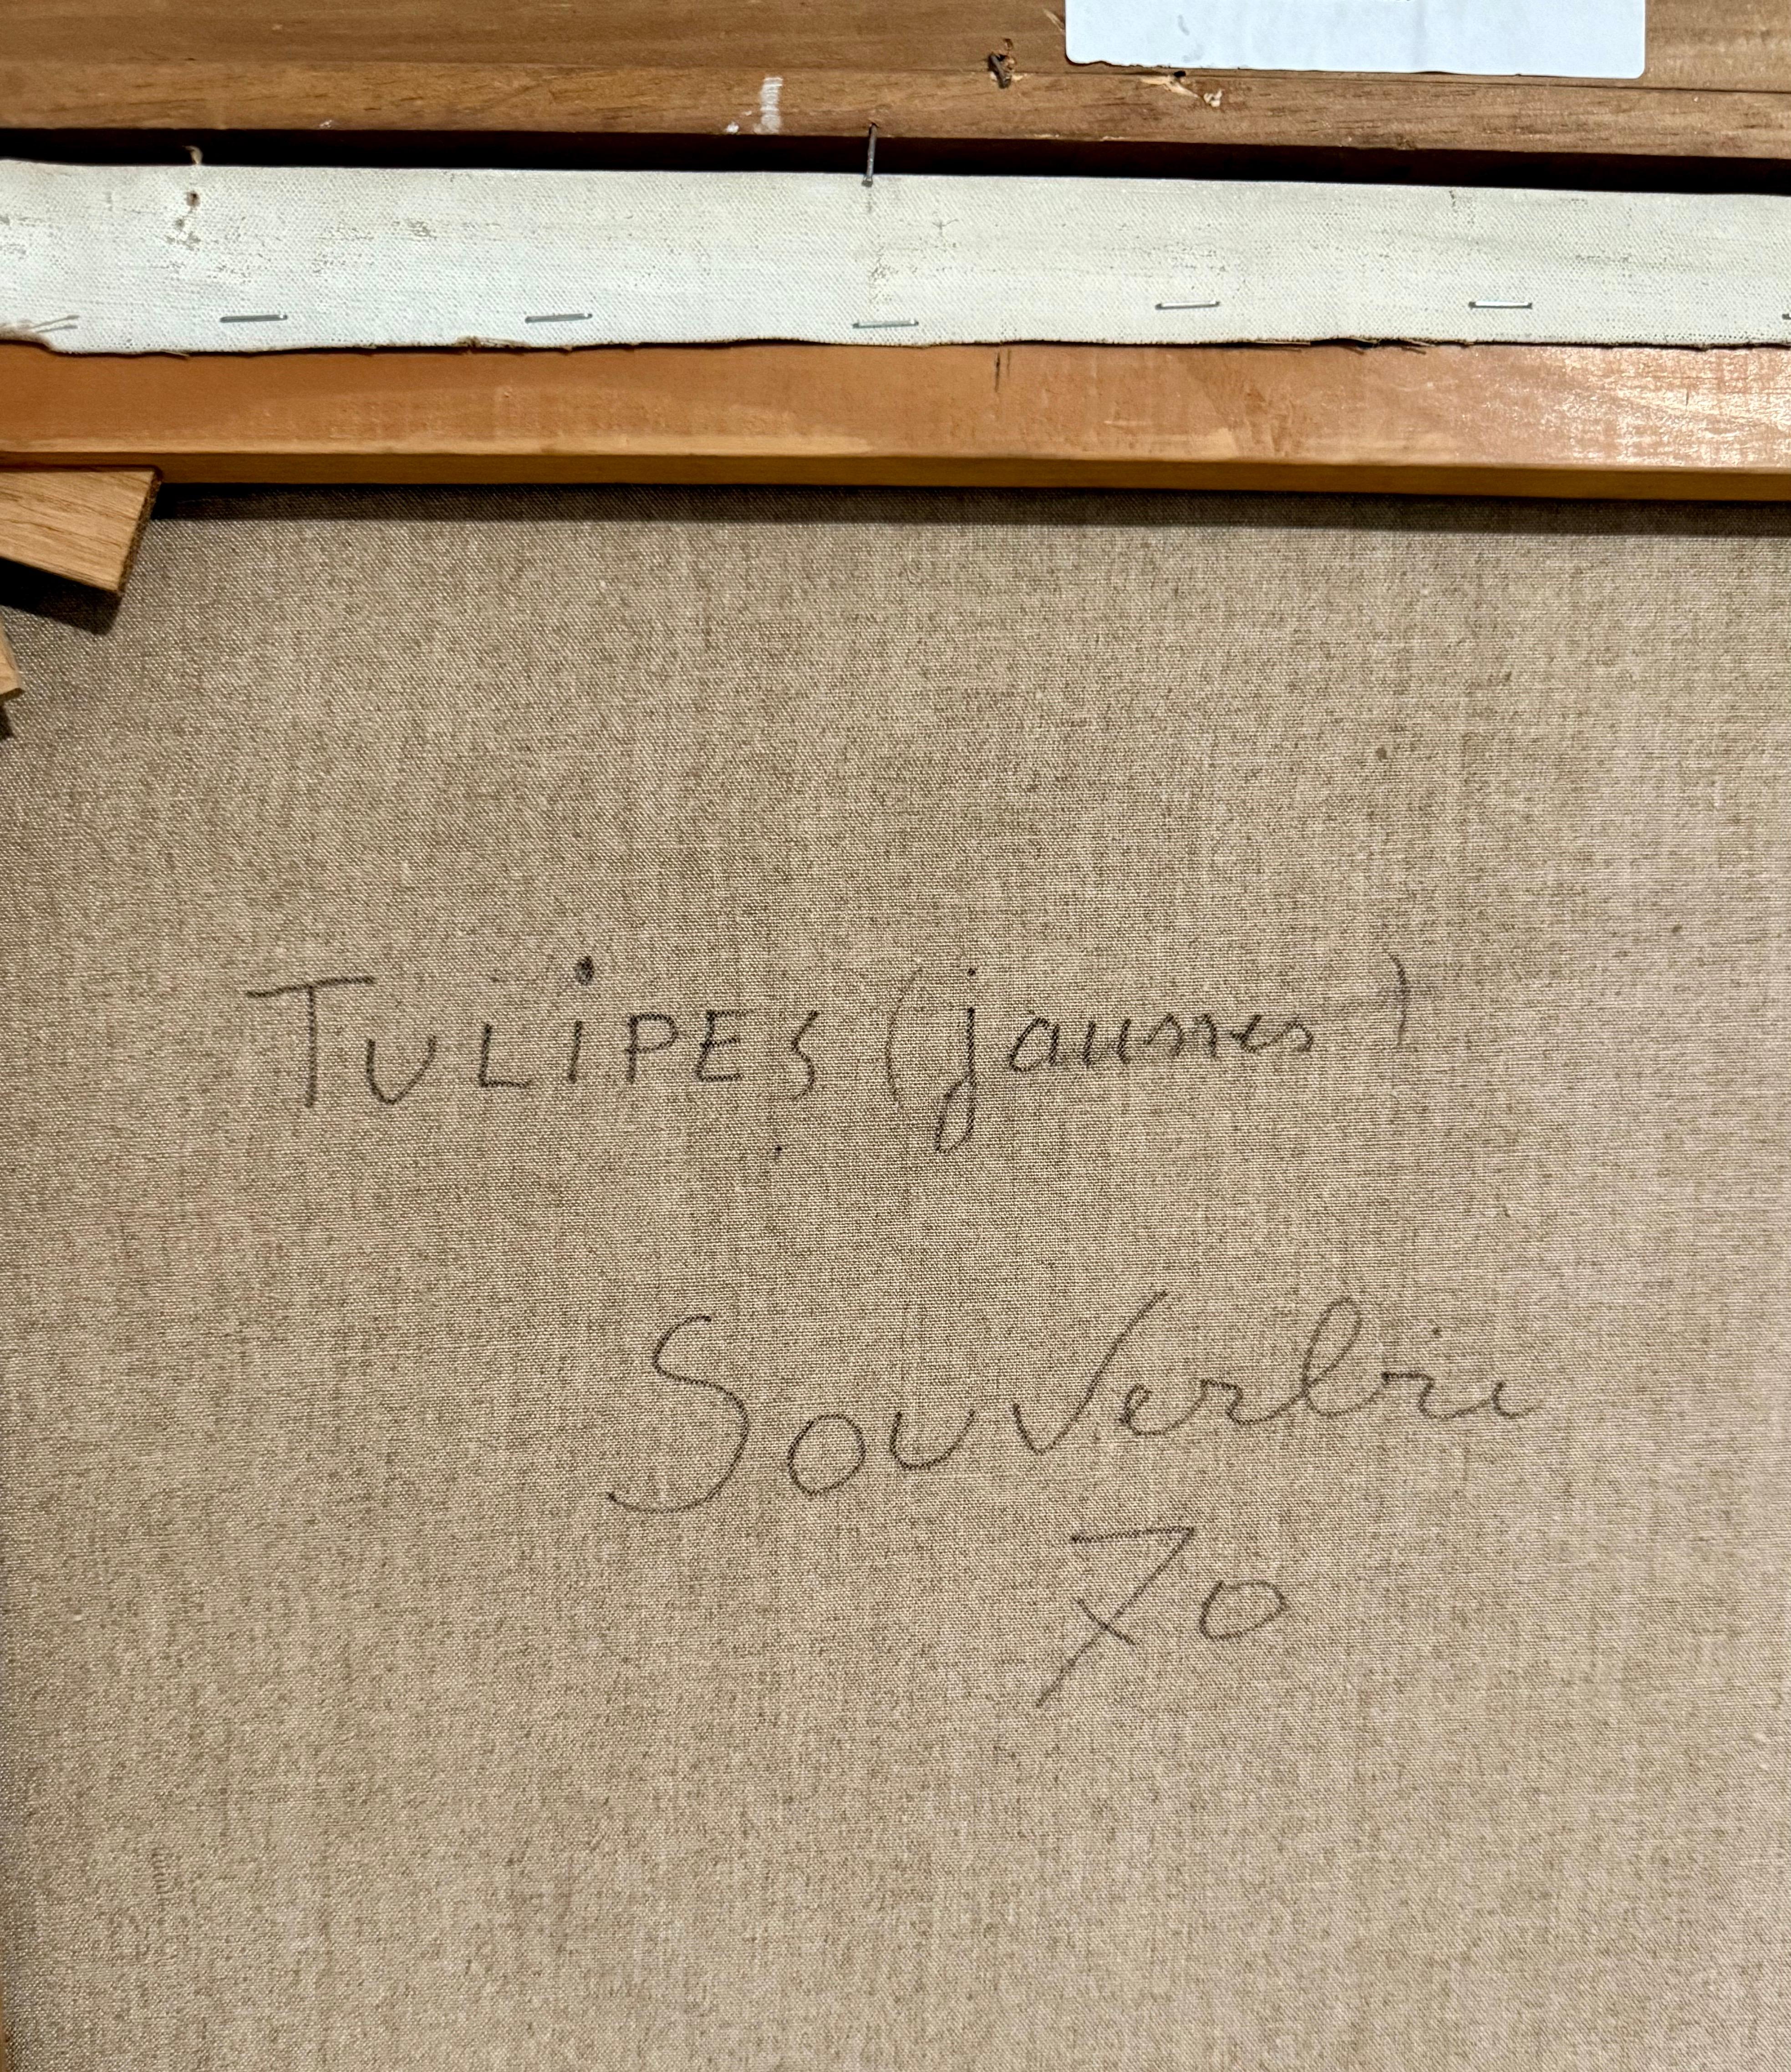 TULiPES (jaunes)
SouVerbie
70